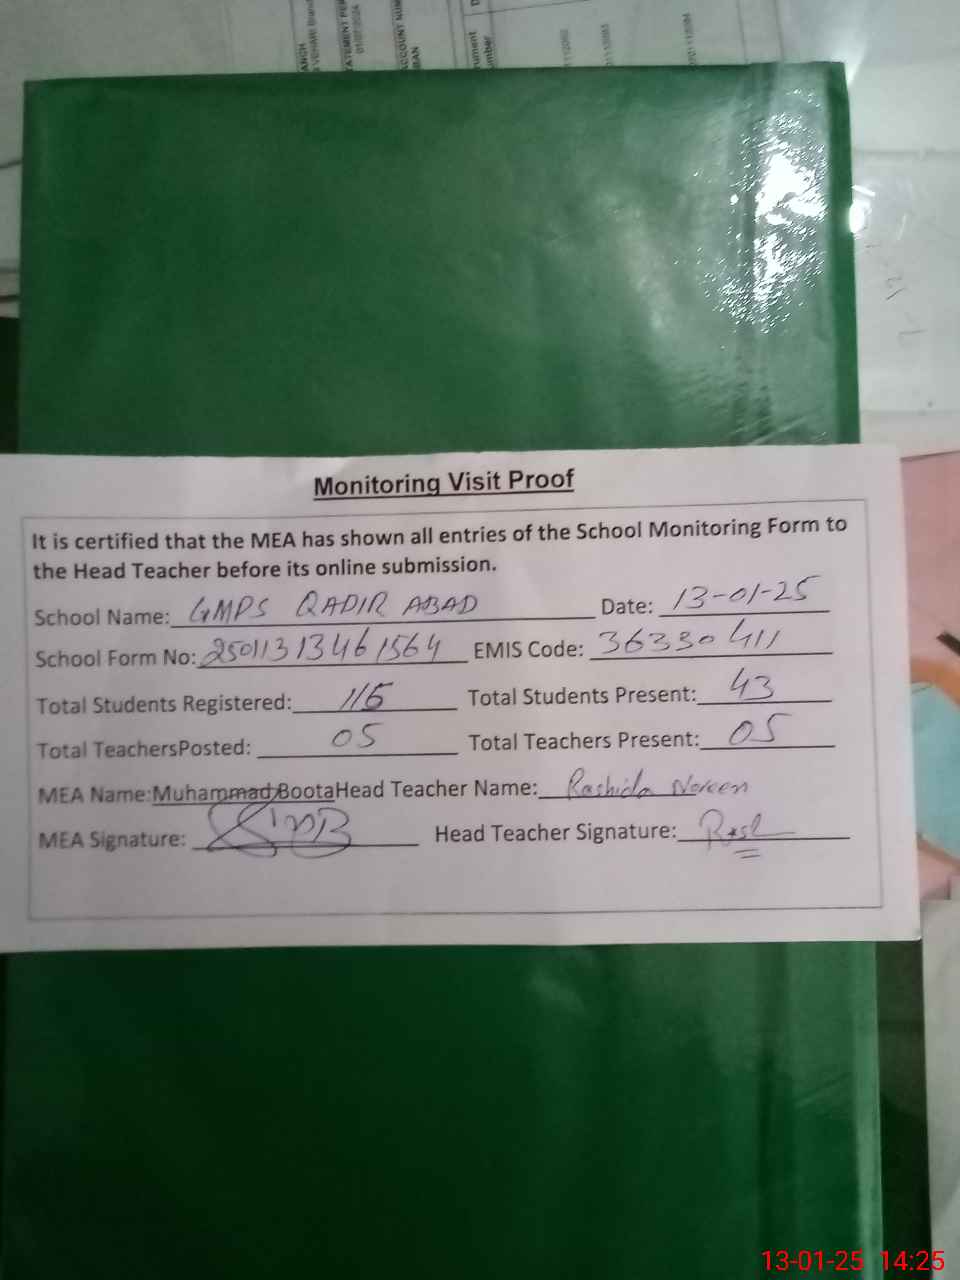 01/07/2024
Monitoring Visit Proof
It is certified that the MEA has shown all entries of the School Monitoring Form to
the Head Teacher before its online submission.
School Name: GMPS QADIR ABAD Date: 13-01-25
School Form No: 2501131346 1564 EMIS Code: 36330411
Total Students Registered: 116 Total Students Present: 43
Total TeachersPosted: 05 Total Teachers Present: 05
MEA Name:Muhammad BootaHead Teacher Name: Rashida Noreen
MEA Signature: Head Teacher Signature:
13-01-25 14:25